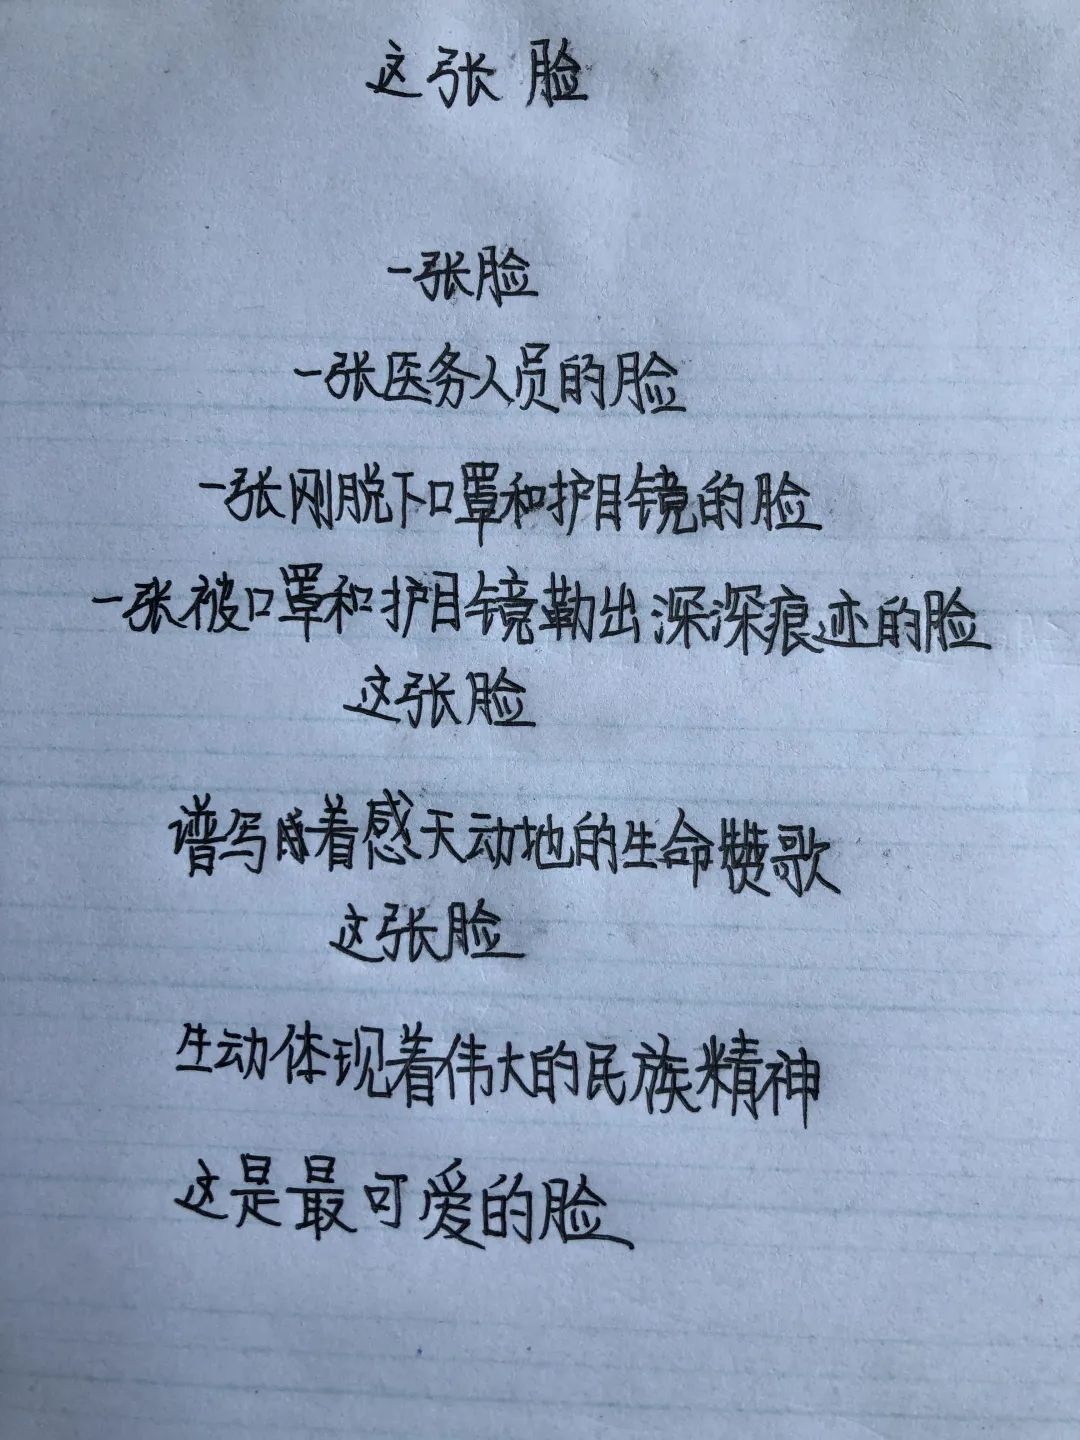 这张脸
一张脸
一张医务人员的脸
一张刚脱下口罩和护目镜的脸
一张被口罩和护目镜勒出深深痕迹的脸
这张脸
谱写着感天动地的生命赞歌
这张脸
生动体现着伟大的民族精神
这是最可爱的脸